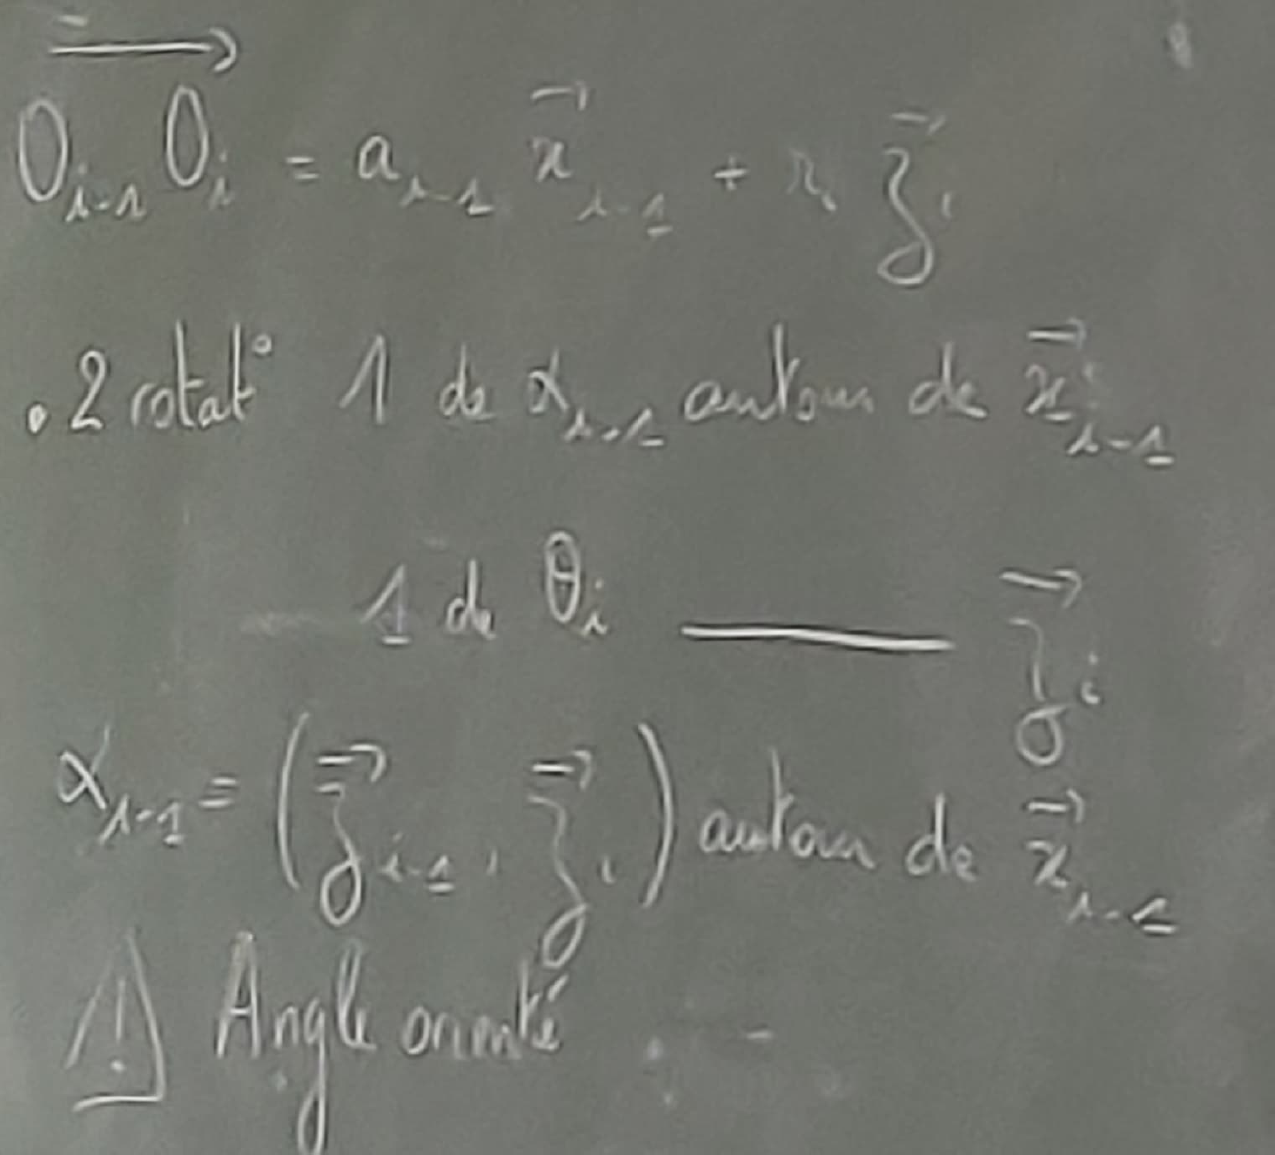 $\overrightarrow{O_{i-1}O_i} = a_{i-1} \vec{x}_{i-1} + r_i \vec{z}_i$
. 2 rotat° 1 de $\alpha_{i-1}$ autour de $\vec{x}_{i-1}$
1 de $\theta_i$ ——— $\vec{z}_i$
$\alpha_{i-1} = (\vec{z}_{i-1}, \vec{z}_i)$ autour de $\vec{x}_{i-1}$
⚠ Angle orienté